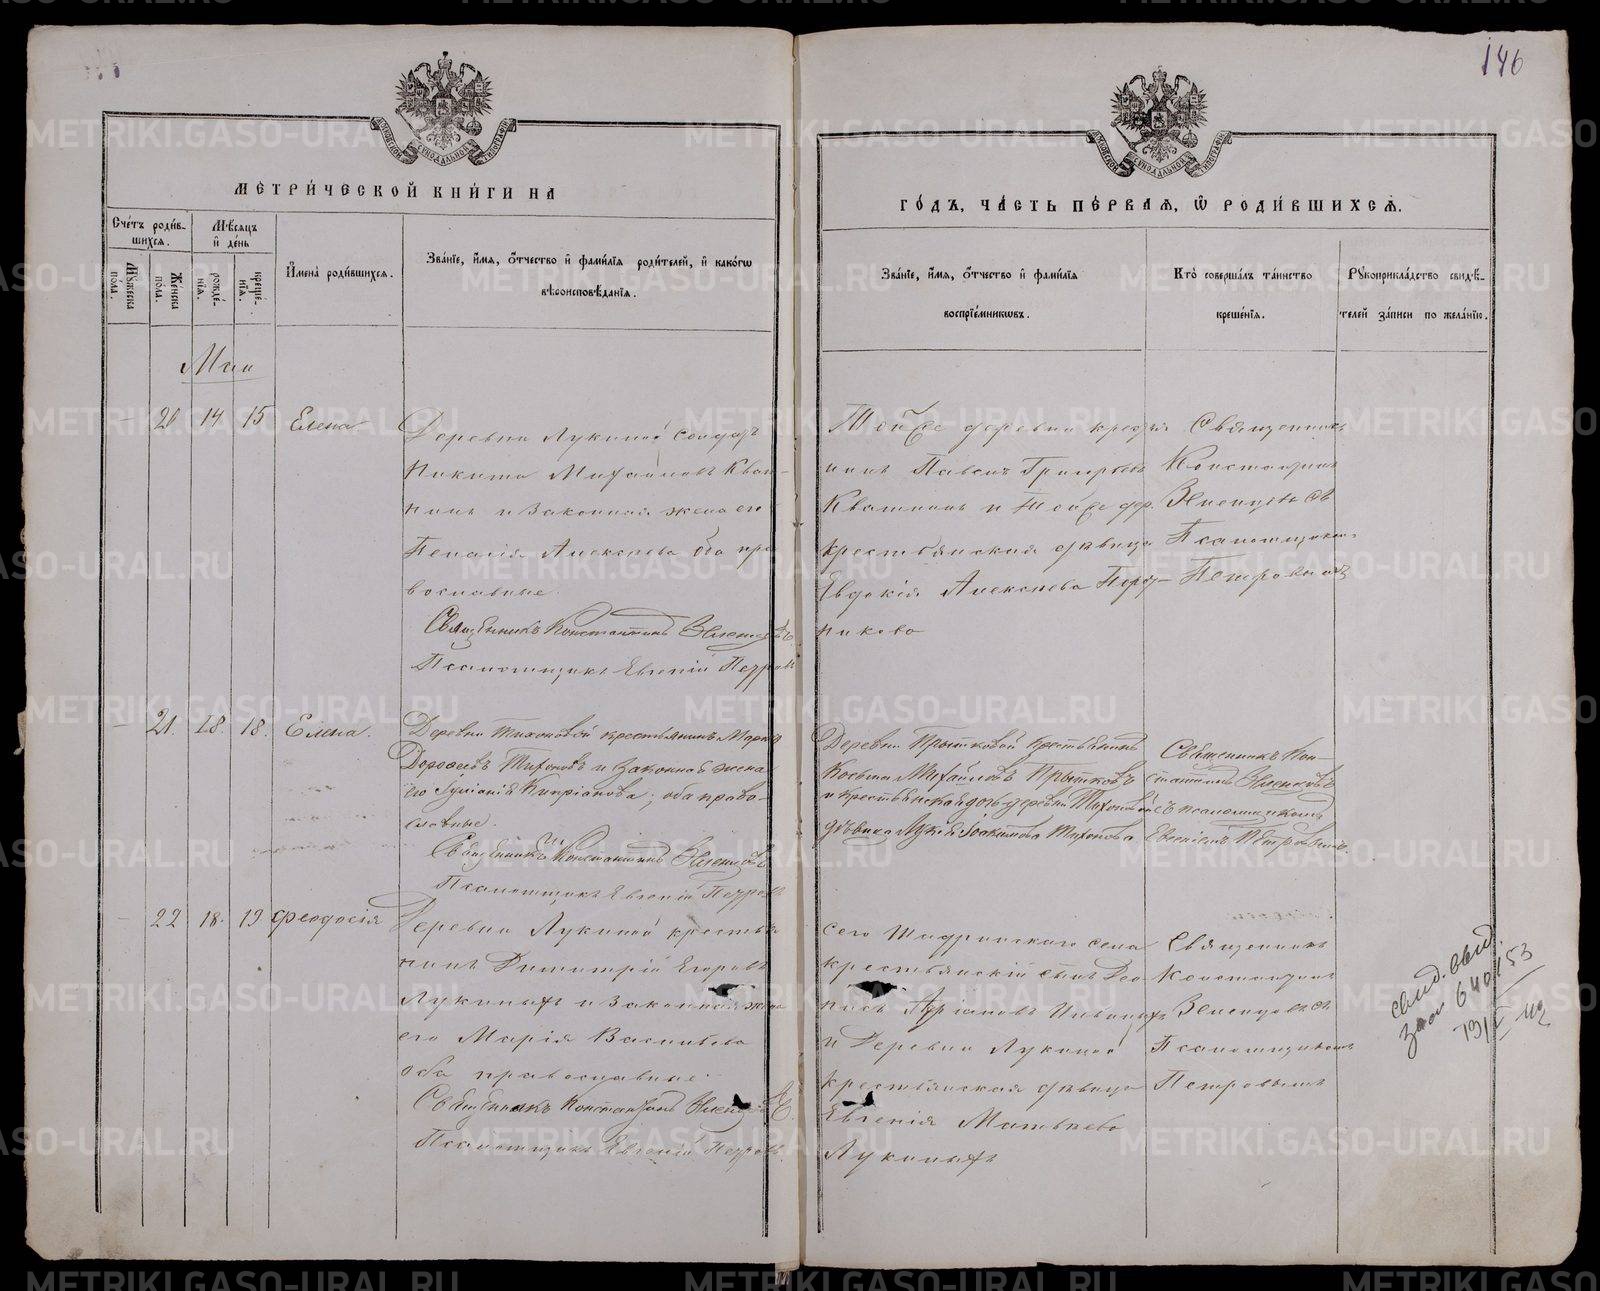 146
МЕТРИ́ЧЕСКОЙ КНИ́ГИ НА
ГО́ДЪ, ЧА́СТЬ ПЕ́РВАѦ, Ѿ РОДИ́ВШИХСѦ.
Сче́тъ роди́в-
шихся.
Мѣ́сяцъ
и҆ де́нь
Мꙋ́жеска
по́ла.
Же́нска
по́ла.
рожде́-
нїѧ.
креще́-
нїѧ.
И҆мена̀ роди́вшихся.
Зва́нїе, и҆́мѧ, ѻ҆́тчество и҆ фами́лїѧ роди́телей, и҆ како́гѡ
вѣроисповѣ́данїѧ.
Зва́нїе, и҆́мѧ, ѻ҆́тчество и҆ фами́лїѧ
воспрїе́мникѡвъ.
Кто̀ соверша́лъ та́инство
креще́нїѧ.
Рꙋкоприкла́дство свидѣ́-
телей за́писи по жела́нїю.
Маи
20 14 15 Елена
Деревни Лукиной солдатъ
Никита Михайловъ Кваш-
нинъ и законная жена его
Алексѣева оба пра
вославные.
Священникъ Константинъ
Псаломщикъ Евгеній Петровъ
Тойже деревни крестья
нинъ Павелъ Григорьевъ
Квашнинъ и тойже дер.
крестьянская дѣвица
Евдокія Алексѣева
никова
Священникъ
Константинъ
съ
Псаломщикомъ
Петровымъ
21. 18. 18. Елена.
Деревни Тихоновой крестьянинъ
Дорофеевъ Тихоновъ и законная жена
его Іуліанія Кипріанова; оба право-
славные.
Священникъ Константинъ
Псаломщикъ Евгеній Петровъ
Деревни Прытковой крестьянинъ
Косьма Михайловъ Прытковъ
и крестьянская дочь деревни Тихоновой
дѣвица Іоакимова Тихонова
Священникъ Кон-
стантинъ
съ псаломщикомъ
Евгеніемъ Петровымъ.
22 18. 19. Феодосія
Деревни Лукиной крестья
нинъ Димитрій Егоровъ
Лукиныхъ и законная жена
его Марія Васильева
оба православные.
Священникъ Константинъ
Псаломщикъ Евгеній Петровъ.
сего Шадринскаго села
крестьянскій сынъ
и Деревни Лукиной
крестьянская дѣвица
Евгенія Матвѣева
Лукиныхъ
Священникъ
Константинъ
съ
Псаломщикомъ
Петровымъ